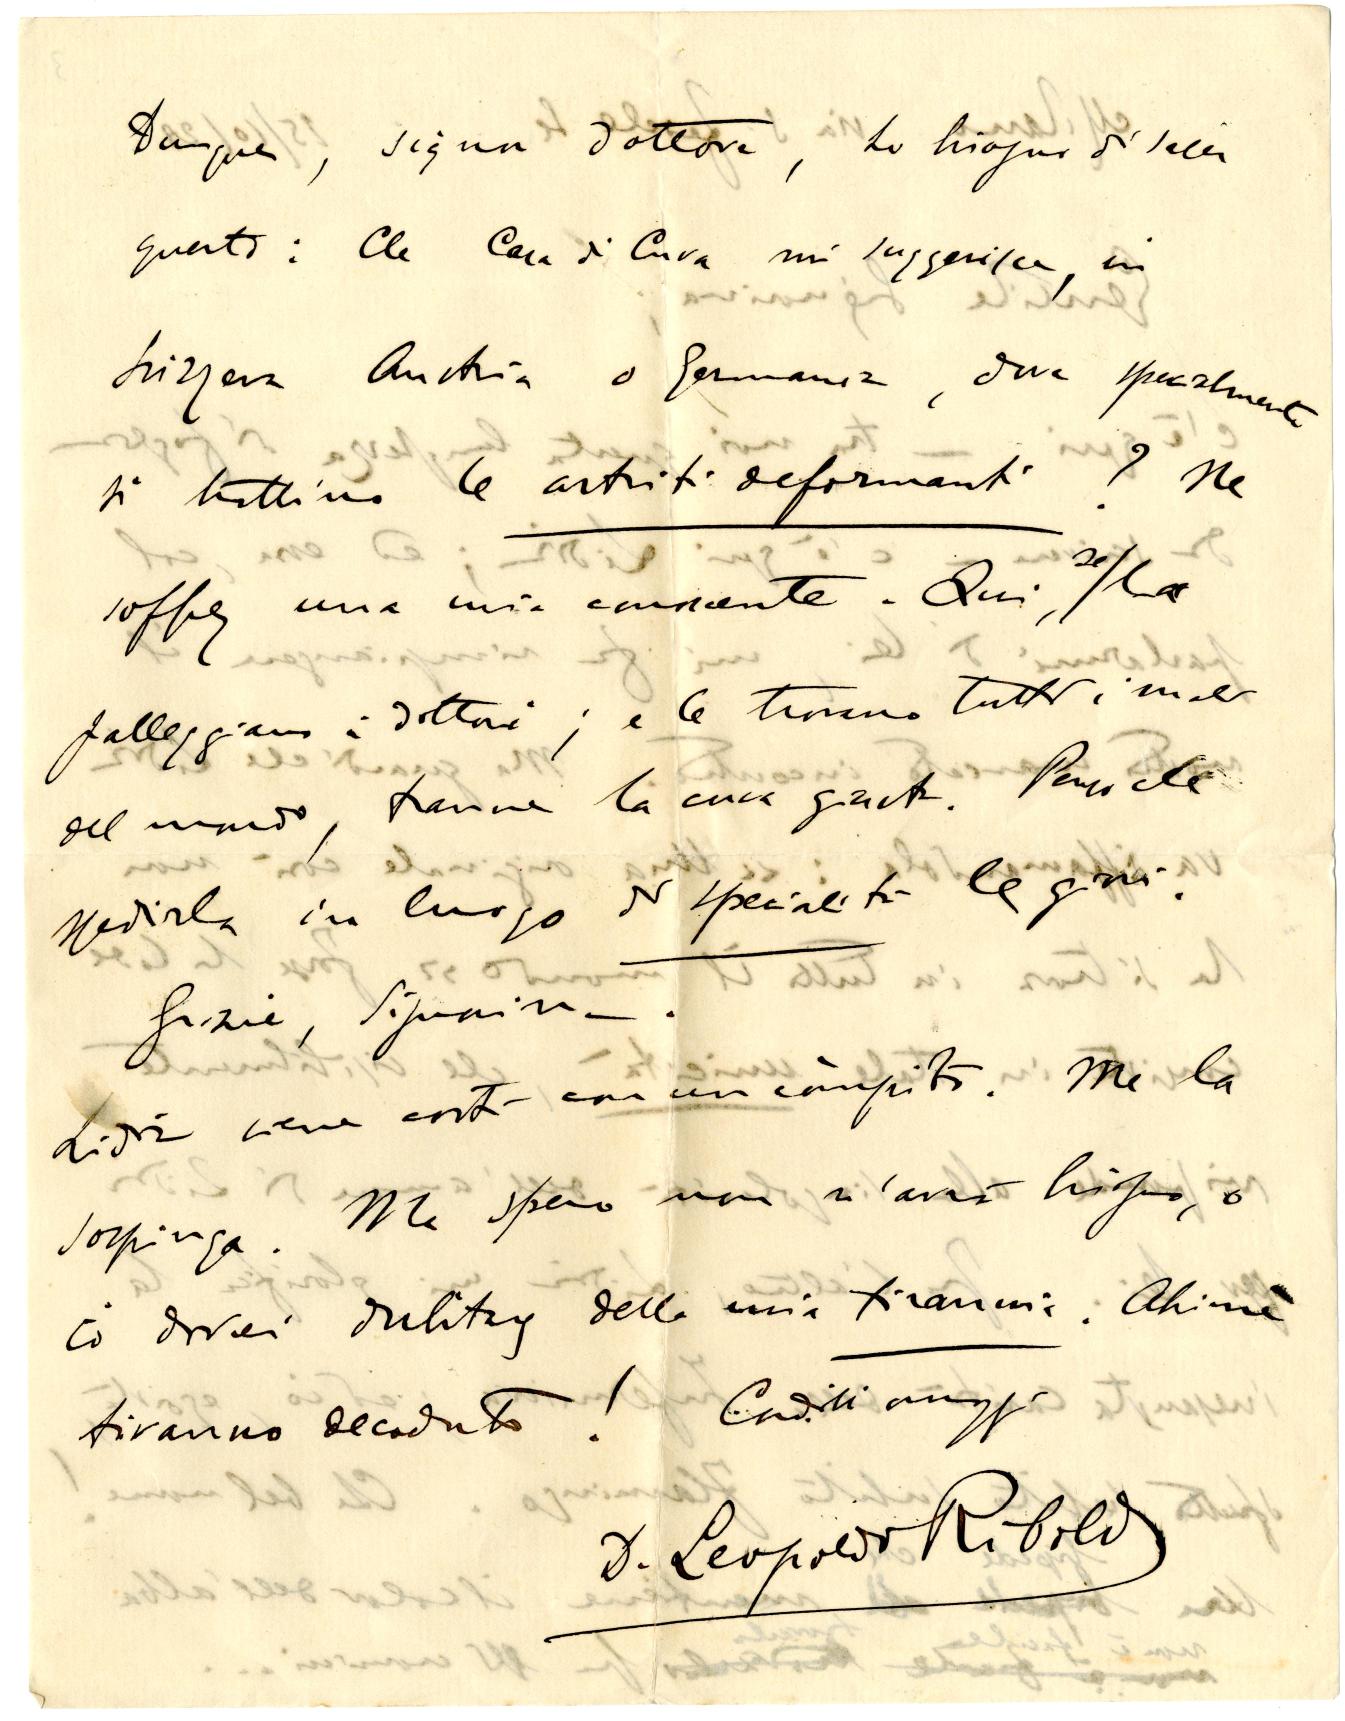 Dunque, signor dottore, ho bisogno di saper
questo: Che Casa di Cura mi suggerisce, in
Svizzera Austria o Germania, dove specialmente
si trattino le artriti deformanti? Ne
soffre una mia conoscente. Qui, se la
palleggiano i dottori; e le trovano tutti i mali
del mondo, tranne la cura giusta. Penso che
spedirla in luogo di specialità le giovi.
Grazie, Signorina.
Lidia viene costì con un còmpito. Me la
sospinga. Ma spero non n'avrà bisogno, o
io dovrei dubitare della mia tirannia. Ahimè
tiranno decaduto! Cordiali omaggi
D. Leopoldo Riboldi